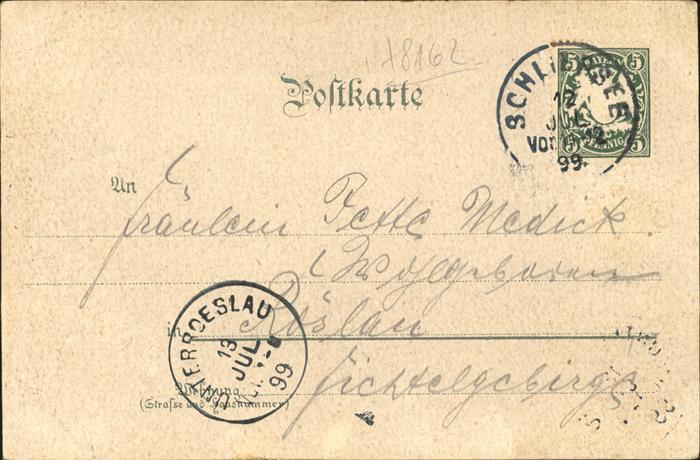 18162
Postkarte
5 5
SCHLIERSEE
12
JUL
Vor
99.
5 5
An
Fräulein Jette Medick.
Wohlgeboren
in Röslau
Fichtelgebirge
UNTERROESLAU
13
JUL
99
Wohnung
(Straße und Hausnummer)